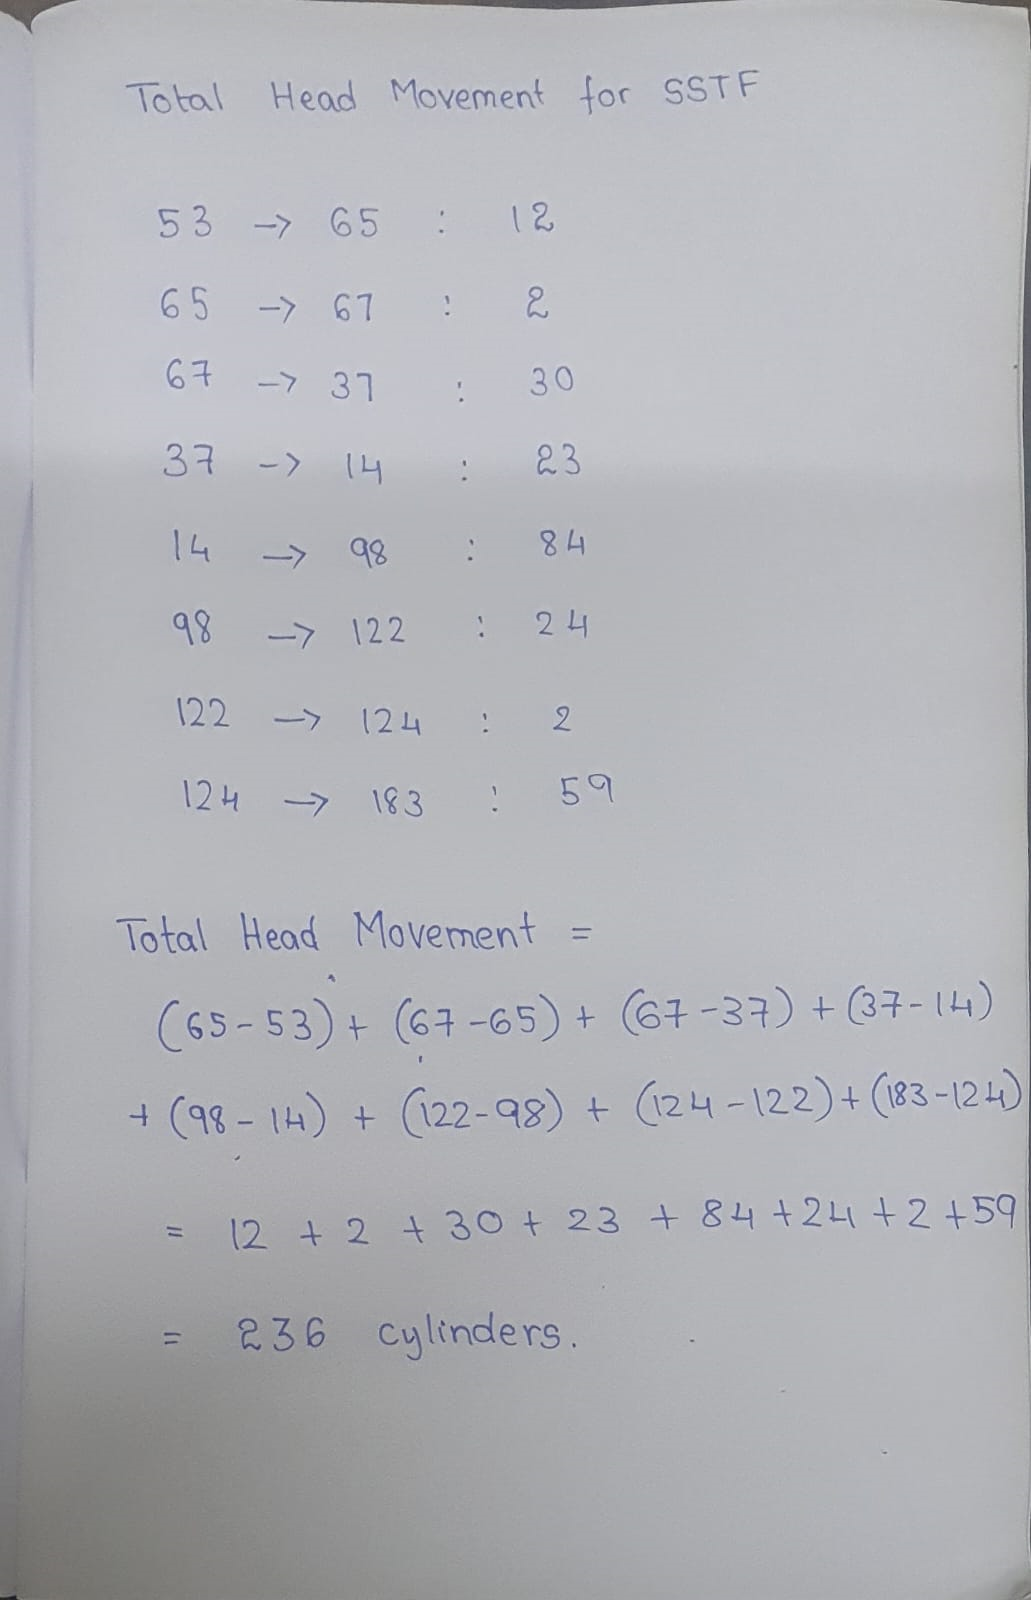 Total Head Movement for SSTF
53 -> 65 : 12
65 -> 67 : 2
67 -> 37 : 30
37 -> 14 : 23
14 -> 98 : 84
98 -> 122 : 24
122 -> 124 : 2
124 -> 183 : 59
Total Head Movement =
(65-53) + (67-65) + (67-37) + (37-14)
+ (98-14) + (122-98) + (124-122) + (183-124)
= 12 + 2 + 30 + 23 + 84 + 24 + 2 + 59
= 236 cylinders.